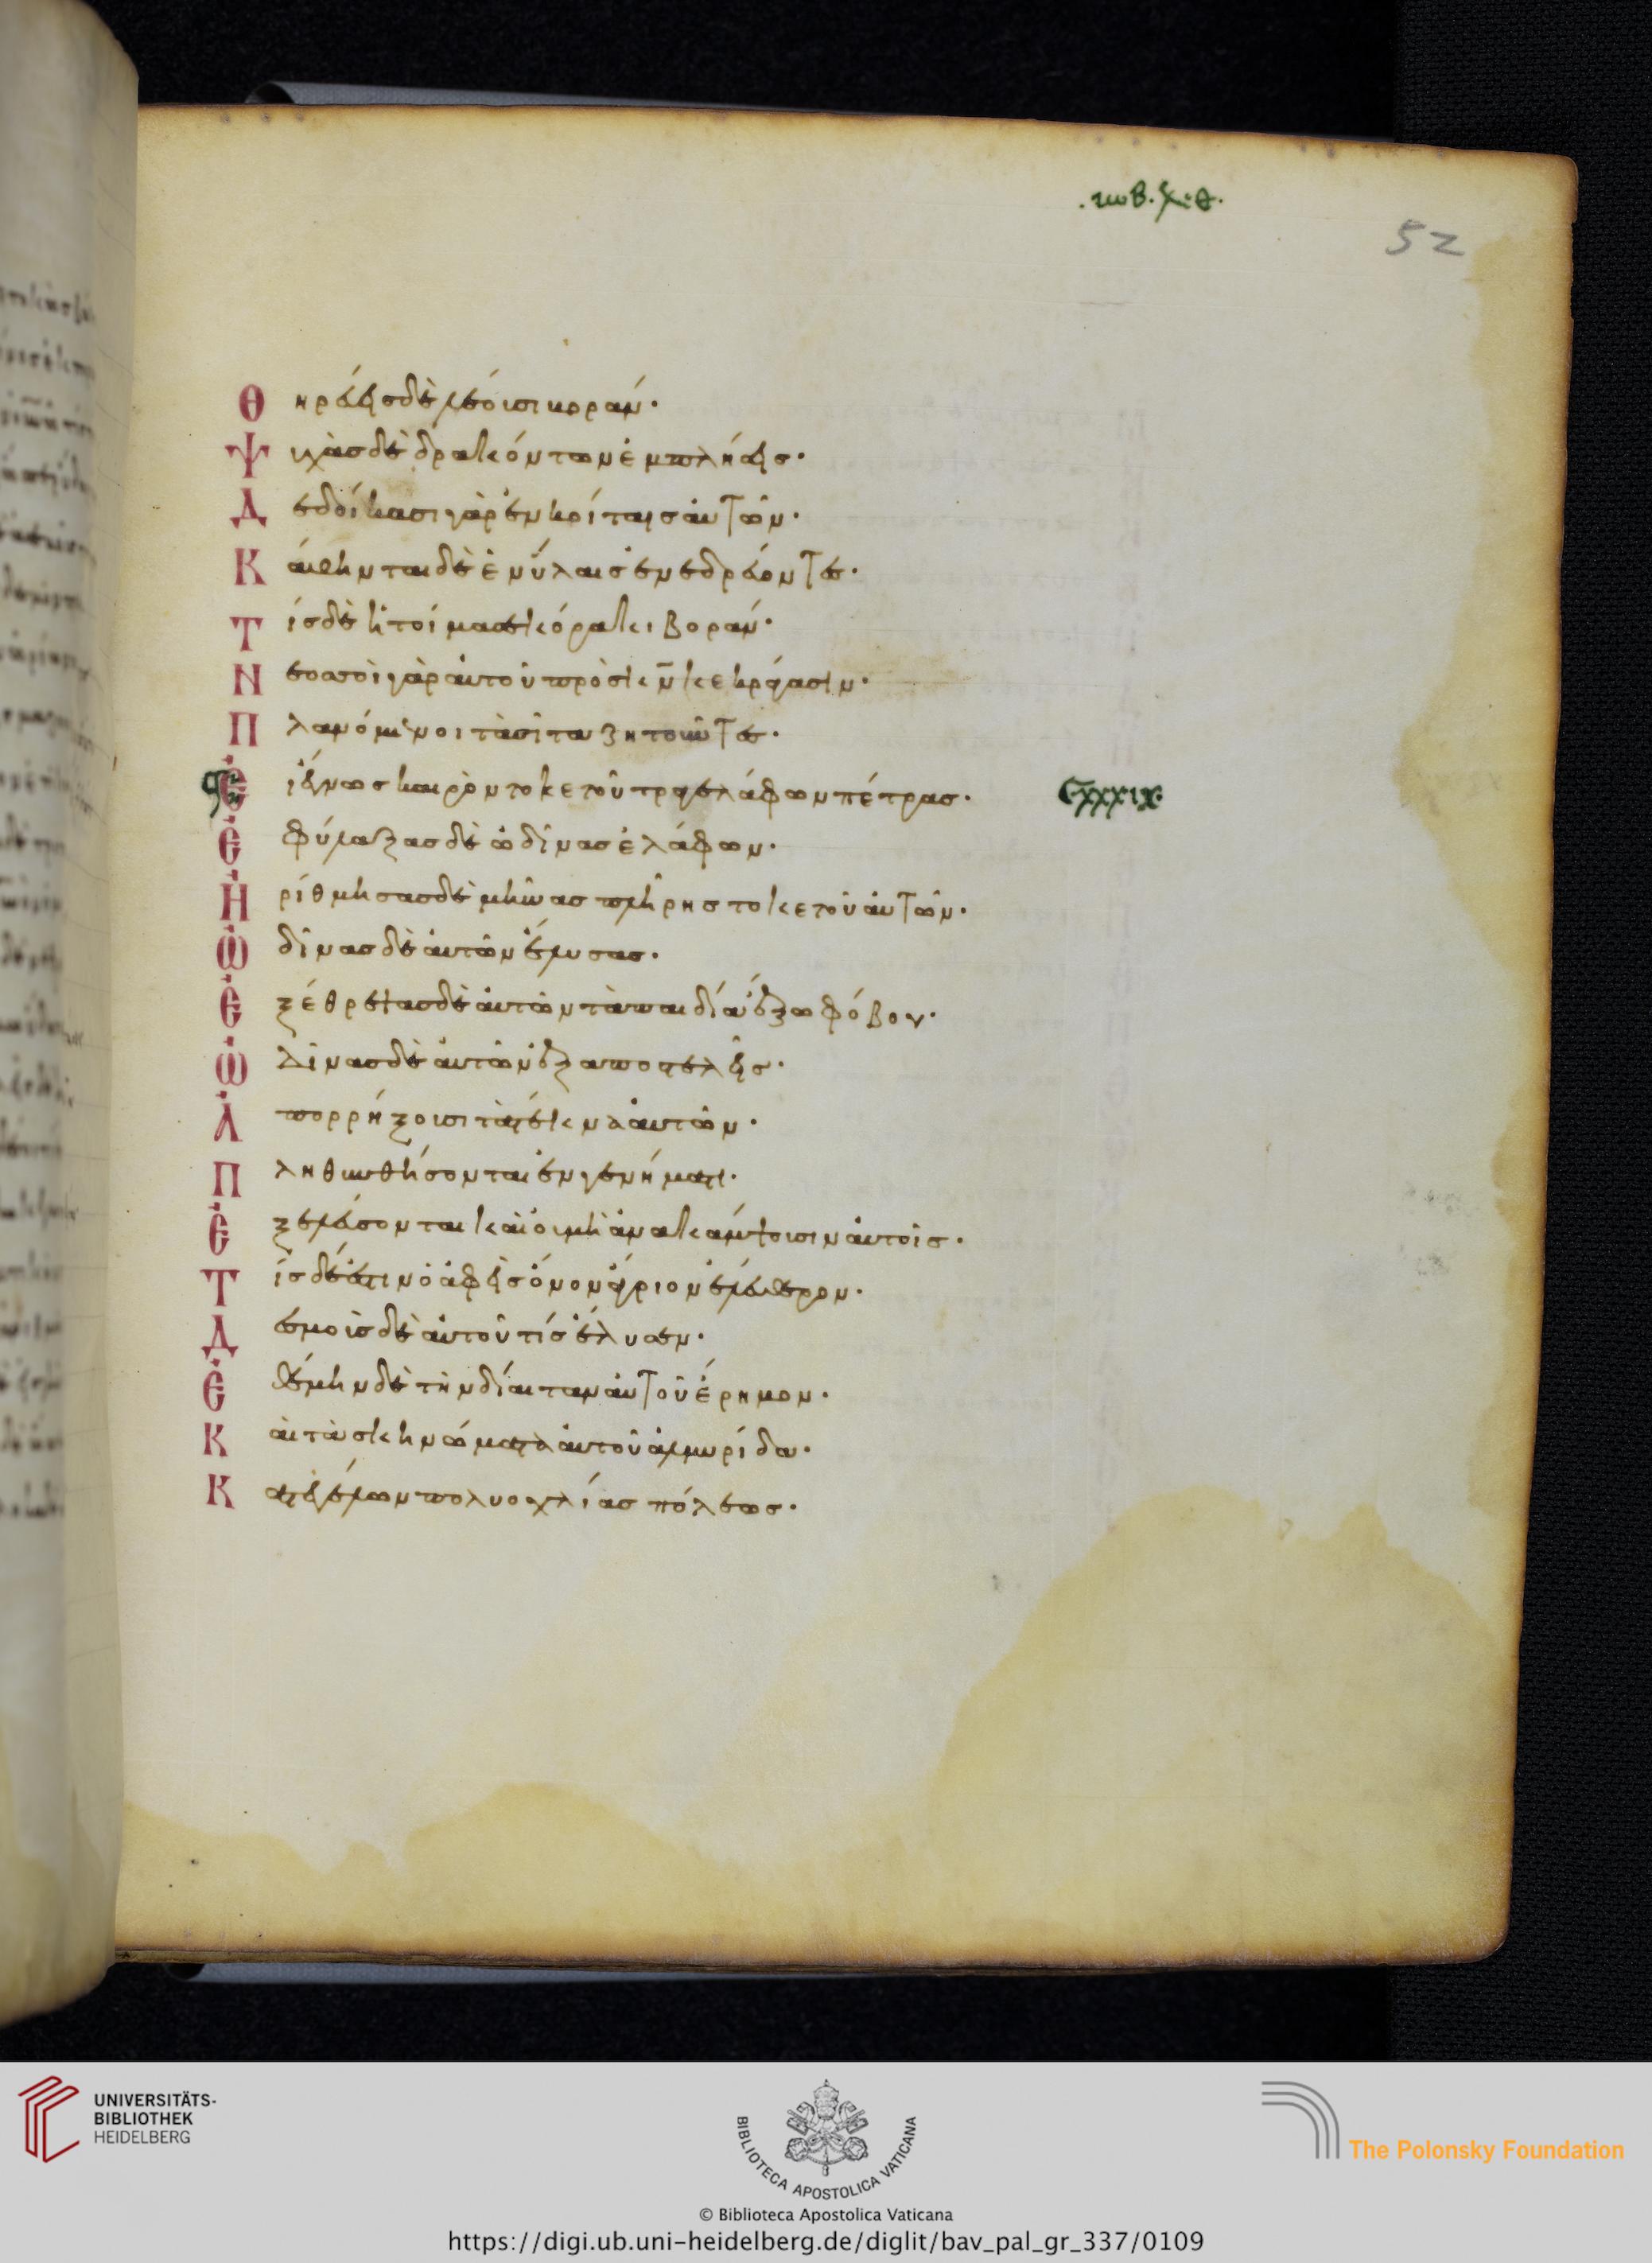 52
Θηράσεις δὲ λέουσι βοράν·
Ψυχὰς δὲ δρακόντων ἐμπλήσεις·
Δεδοίκασι γὰρ ἐν κοίταις αὐτῶν·
Κάθηνται δὲ ἐν ὕλαις ἐνεδρεύοντες·
Τίς δὲ ἡτοίμασε κόρακι βοράν·
Νεοσσοὶ γὰρ αὐτοῦ πρὸς κν̄ κεκράγασιν·
Πλανόμενοι τὰ σῖτα ζητοῦντες·
Εἰ ἔγνως καιρὸν τοκετοῦ τραγελάφων πέτρας· Cxxxix·
Ἐφύλαξας δὲ ὠδῖνας ἐλάφων·
Ἠρίθμησας δὲ μῆνας πλήρης τοκετοῦ αὐτῶν·
Ὠδῖνας δὲ αὐτῶν ἔλυσας·
Ἐξέθρεψας δὲ αὐτῶν τὰ παιδία ἔξω φόβου·
Ὠδῖνας δὲ αὐτῶν ἐξαποστελεῖς·
Ἀπορρήξουσι τὰ τέκνα αὐτῶν·
Πληθυνθήσονται ἐν γενήματι·
Ἐξελεύσονται καὶ οὐ μὴ ἀνακάμψουσιν αὐτοῖς·
Τίς δέ ἐστιν ὁ ἀφεὶς ὄνον ἄγριον ἐλεύθερον·
Δεσμοὺς δὲ αὐτοῦ τίς ἔλυσεν·
Ἐθέμην δὲ τὴν δίαιταν αὐτοῦ ἔρημον·
Καὶ τὰ σκηνώματα αὐτοῦ ἁλμυρίδα·
Καταγελῶν πολυοχλίας πόλεως·
UNIVERSITÄTS-
BIBLIOTHEK
HEIDELBERG
BIBLIOTECA APOSTOLICA VATICANA
The Polonsky Foundation
© Biblioteca Apostolica Vaticana
https://digi.ub.uni-heidelberg.de/diglit/bav_pal_gr_337/0109